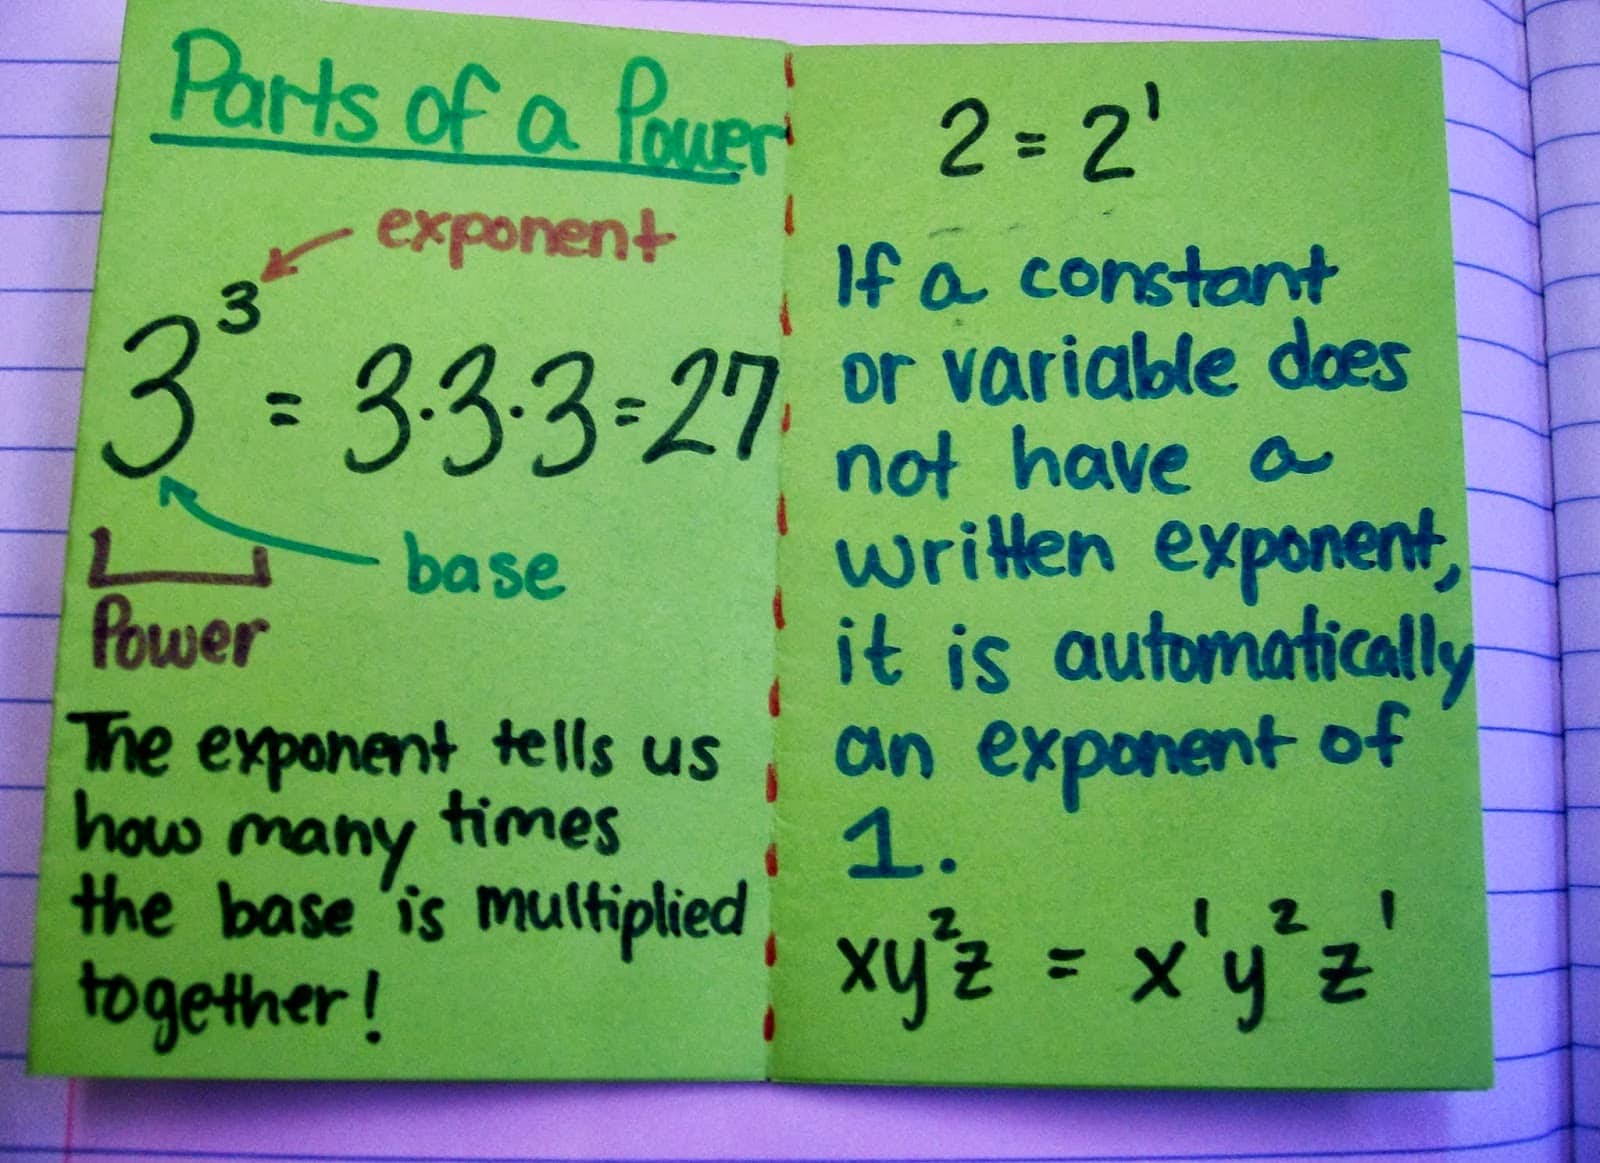 Parts of a Power
exponent
3³ = 3·3·3=27
base
Power
The exponent tells us
how many times
the base is multiplied
together!
2 = 2¹
If a constant
or variable does
not have a
written exponent,
it is automatically
an exponent of
1.
xy²z = x¹y²z¹